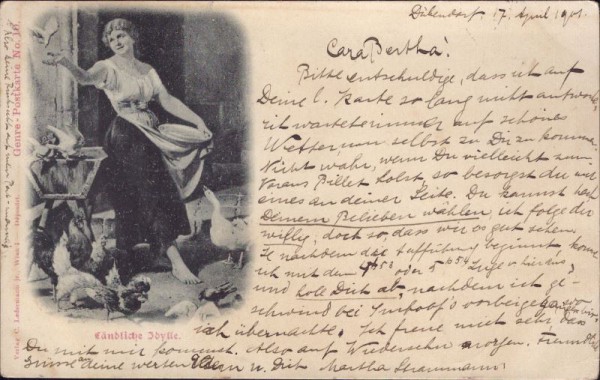 Dübendorf 17. April 1901.
Cara Bertha!
Bitte entschuldige, dass ich auf
Deine l. Karte so lang nicht antwortete
ich wartete immer auf schönes
Wetter, um selbst zu Dir zu kommen.
Nicht wahr, wenn Du vielleicht zum
Voraus Billet holst, so besorgst du mir
eines an deiner Seite. Du kannst nach
Deinem Belieben wählen, ich folge dir
willig, doch so, dass wir es gut sehen.
Je nachdem die Aufführung beginnt, komme
ich mit dem oder 5 Zuge hinein
und hole Dich ab, nachdem ich ge-
schwind bei vorbeigegangen
ich übernachte. Ich freue mich sehr, dass
Du mit mir kommst. Also auf Wiedersehn morgen. Freundliche
Grüsse an deine werten Eltern u. Dich Martha
Ländliche Idylle.
Genre-Postkarte No. 16.
Verlag C. Ledermann jr., Wien I.